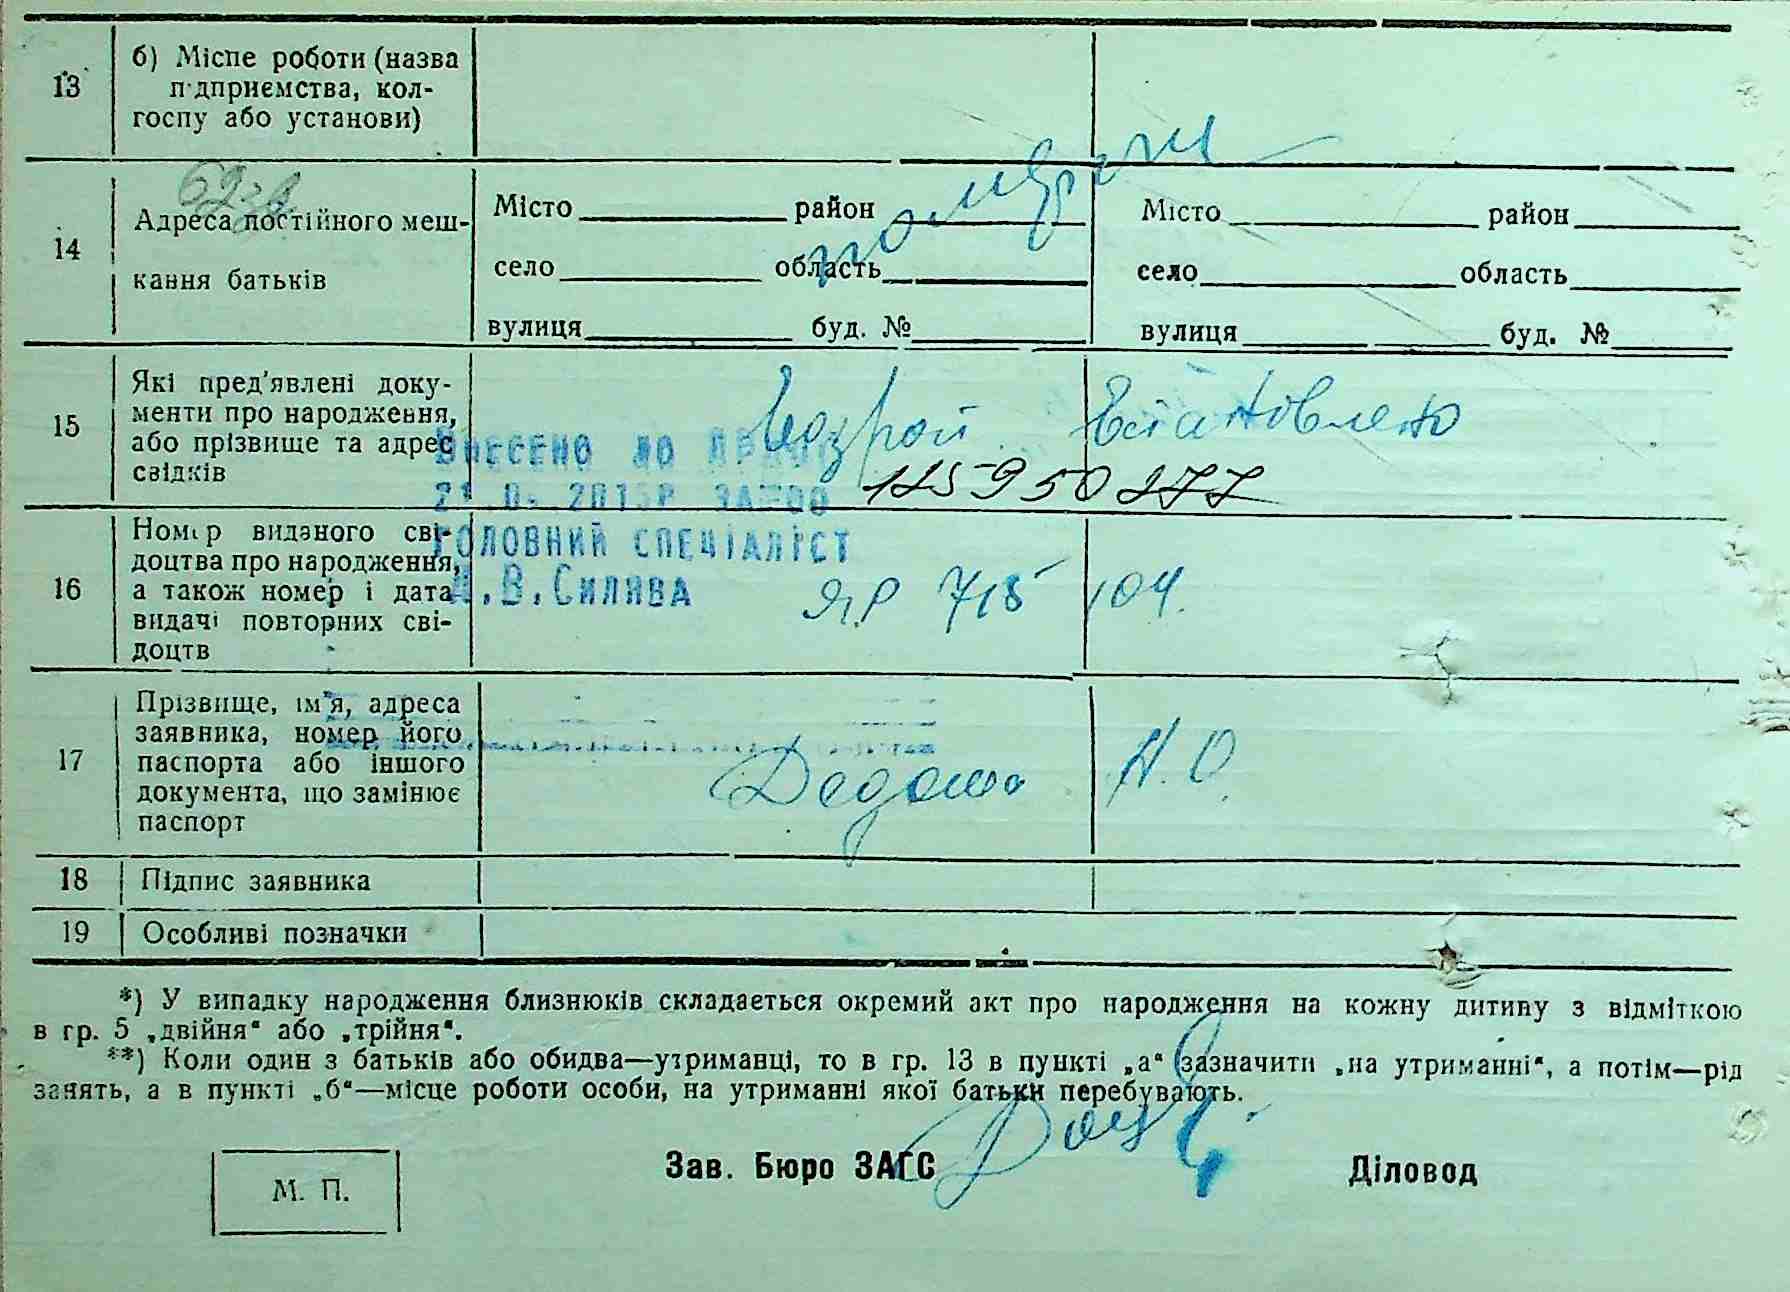 13
б) Місце роботи (назва
підприємства, кол-
госпу або установи)
14
Адреса постійного меш-
кання батьків
Місто район
село область
вулиця буд. №
Місто район
село область
вулиця буд. №
15
Які пред'явлені доку-
менти про народження,
або прізвище та адрес
свідків
Встановлено
115950277
16
Номер виданого сві-
доцтва про народження,
а також номер і дата
видачі повторних сві-
доцтв
ВНЕСЕНО ДО
ГОЛОВНИЙ СПЕЦІАЛІСТ
.В.Силява
ЯР 715104.
17
Прізвище, ім'я, адреса
заявника, номер його
паспорта або іншого
документа, що замінює
паспорт
Н. О.
18
Підпис заявника
19
Особливі позначки
*) У випадку народження близнюків складається окремий акт про народження на кожну дитину з відміткою
в гр. 5 „двійня“ або „трійня“.
**) Коли один з батьків або обидва—утриманці, то в гр. 13 в пункті „а“ зазначити „на утриманні“, а потім—рід
занять, а в пункті „б“—місце роботи особи, на утриманні якої батьки перебувають.
М. П.
Зав. Бюро ЗАГС
Діловод